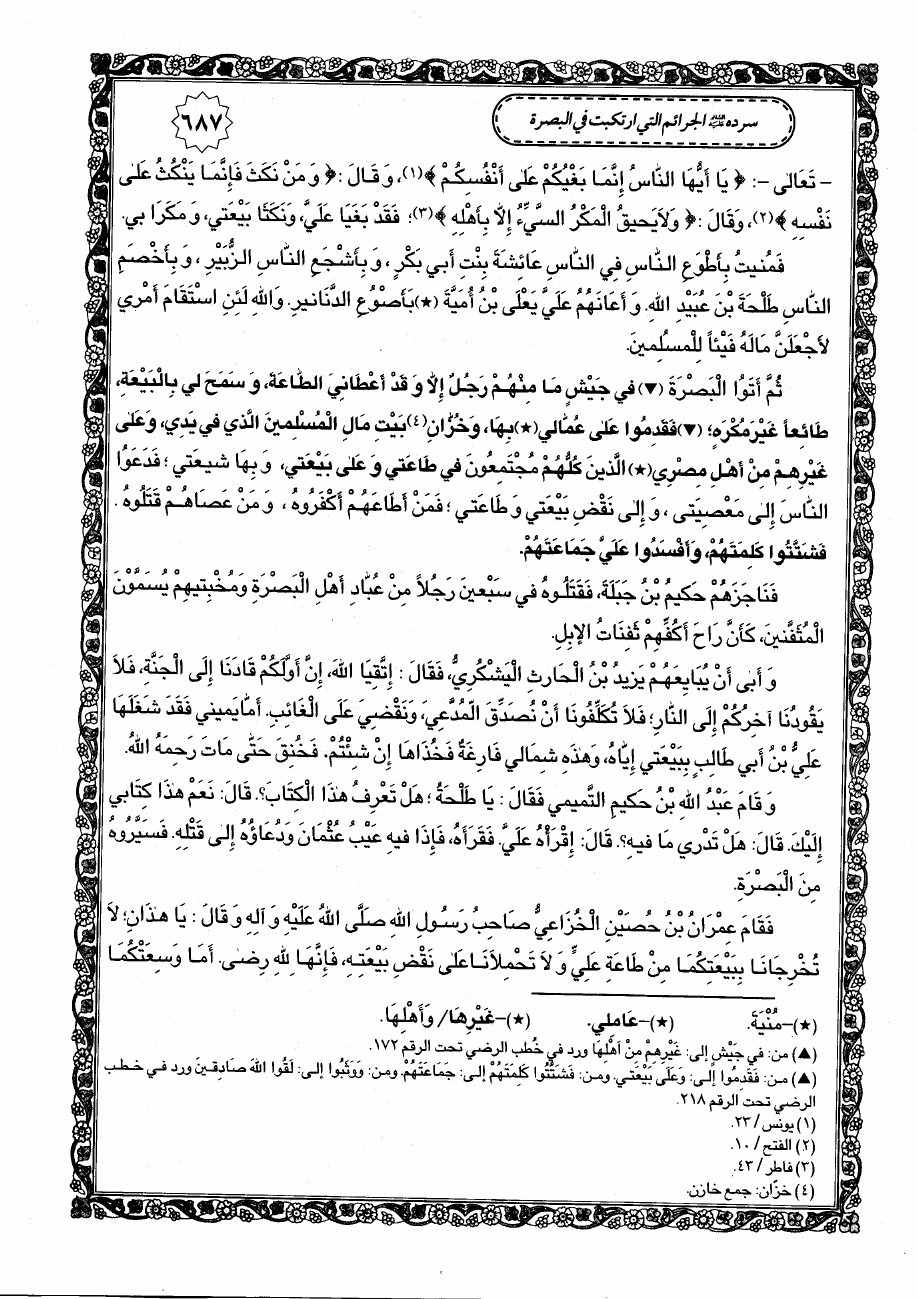 سرده عليه السلام الجرائم التي ارتكبت في البصرة
٦٨٧
- تَعَالى -: ﴿ يَا أَيُّهَا النَّاسُ إِنَّمَا بَغْيُكُمْ عَلى أَنْفُسِكُمْ ﴾(١)، وَ قَالَ: ﴿ وَ مَنْ نَكَثَ فَإِنَّمَا يَنْكُثُ عَلى
نَفْسِهِ ﴾(٢)، وَقَالَ: ﴿ وَلاَيَحيقُ الْمَكْرُ السَّيِّءُ إِلاَّ بِأَهْلِهِ ﴾(٣)؛ فَقَدْ بَغَيَا عَلَيَّ، وَنَكَثَا بَيْعَتي، وَ مَكَرَا بي.
فَمُنيتُ بِأَطْوَعِ النَّاسِ فِي النَّاسِ عَائِشَةَ بِنْتِ أَبي بَكْرٍ، وَ بِأَشْجَعِ النَّاسِ الزُّبَيْرِ، وَ بِأَخْصَمِ
النَّاسِ طَلْحَةَ بْنَ عُبَيْدِ اللهِ. وَ أَعَانَهُمْ عَلَيَّ يَعْلَى بْنُ أُمَيَّةَ (★)بِأَصْوُعِ الدَّنَانيرِ. وَاللهِ لَئِنِ اسْتَقَامَ أَمْري
لأَجْعَلَنَّ مَالَهُ فَيْئاً لِلْمُسْلِمينَ.
ثُمَّ أَتَوُا الْبَصْرَةَ (▼)في جَيْشٍ مَا مِنْهُمْ رَجُلٌ إِلاَّ وَ قَدْ أَعْطَانِي الطَّاعَةَ، وَ سَمَحَ لي بِالْبَيْعَةِ،
طَائِعاً غَيْرَ مُكْرَهٍ؛ (▼)فَقَدِمُوا عَلى عُمَّالي(★)بِهَا، وَخُزَّانِ(٤)بَيْتِ مَالِ الْمُسْلِمينَ الَّذي في يَدي، وَعَلى
غَيْرِهِمْ مِنْ أَهْلِ مِصْري(★) الَّذينَ كُلُّهُمْ مُجْتَمِعُونَ في طَاعَتي وَ عَلى بَيْعَتي، وَ بِهَا شيعَتي؛ فَدَعَوُا
النَّاسَ إِلى مَعْصِيَتي، وَ إِلى نَقْضِ بَيْعَتي وَ طَاعَتي؛ فَمَنْ أَطَاعَهُمْ أَكْفَرُوهُ، وَ مَنْ عَصَاهُمْ قَتَلُوهُ.
فَشَتَّتُوا كَلِمَتَهُمْ، وَأَفْسَدُوا عَلَيَّ جَمَاعَتَهُمْ.
فَنَاجَزَهُمْ حَكيمُ بْنُ جَبَلَةَ، فَقَتَلُوهُ في سَبْعينَ رَجُلاً مِنْ عُبَّادِ أَهْلِ الْبَصْرَةِ وَمُخْبِتيهِمْ يُسَمَّوْنَ
الْمُثَفَّنينَ، كَأَنَّ رَاحَ أَكُفِّهِمْ ثَفِنَاتُ الإِبِلِ.
وَ أَبى أَنْ يُبَايِعَهُمْ يَزيدُ بْنُ الْحَارِثِ الْيَشْكُرِيُّ، فَقَالَ: إِتَّقِيَا اللهَ، إِنَّ أَوَّلَكُمْ قَادَنَا إِلَى الْجَنَّةِ، فَلاَ
يَقُودُنَا آخِرُكُمْ إِلَى النَّارِ؛ فَلاَ تُكَلِّفُونَا أَنْ نُصَدِّقَ الْمُدَّعِيَ، وَنَقْضِيَ عَلَى الْغَائِبِ. أَمَّا يَميني فَقَدْ شَغَلَهَا
عَلِيُّ بْنُ أَبي طَالِبٍ بِبَيْعَتي إِيَّاهُ، وَهٰذِهِ شِمَالي فَارِغَةٌ فَخُذَاهَا إِنْ شِئْتُمْ. فَخُنِقَ حَتَّى مَاتَ رَحِمَهُ اللهُ.
وَ قَامَ عَبْدُ اللهِ بْنُ حَكيمِ التَّميمي فَقَالَ: يَا طَلْحَةُ؛ هَلْ تَعْرِفُ هٰذَا الْكِتَابَ؟. قَالَ: نَعَمْ هٰذَا كِتَابي
إِلَيْكَ. قَالَ: هَلْ تَدْري مَا فيهِ؟. قَالَ: إِقْرَأْهُ عَلَيَّ. فَقَرَأَهُ، فَإِذَا فيهِ عَيْبُ عُثْمَانَ وَدُعَاؤُهُ إِلى قَتْلِهِ. فَسَيَّرُوهُ
مِنَ الْبَصْرَةِ.
فَقَامَ عِمْرَانُ بْنُ حُصَيْنِ الْخُزَاعِيُّ صَاحِبُ رَسُولِ اللهِ صَلَّى اللهُ عَلَيْهِ وَ آلِهِ وَ قَالَ: يَا هٰذَانِ؛ لاَ
تُخْرِجَانَا بِبَيْعَتِكُمَا مِنْ طَاعَةِ عَلِيٍّ وَ لاَ تَحْمِلاَنَا عَلى نَقْضِ بَيْعَتِهِ، فَإِنَّهَا لِلّهِ رِضىً. أَمَا وَسِعَتْكُمَا
(★)-مُنْيَةَ. (★)-عَاملي. (★)-غَيْرِهَا/ وَأَهْلِهَا.
(▲) من: في جَيْشٍ إلى: غَيْرِهِمْ مِنْ أَهْلِهَا ورد في خُطب الرضي تحت الرقم ١٧٢.
(▲) من: فَقَدِمُوا إلى: وَعَلى بَيْعَتي. ومن: فَشَتَّتُوا كَلِمَتَهُمْ إلى: جَمَاعَتَهُمْ. ومن: وَوَثَبُوا إلى: لَقُوا اللهَ صَادِقينَ ورد في خطب
الرضي تحت الرقم ٢١٨.
(١) يونس / ٢٣.
(٢) الفتح / ١٠.
(٣) فاطر / ٤٣.
(٤) خزّان: جمع خازن.